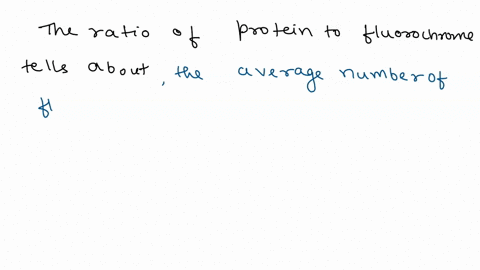 The ratio of protein to fluorochrome
tells about, the average number of
fl